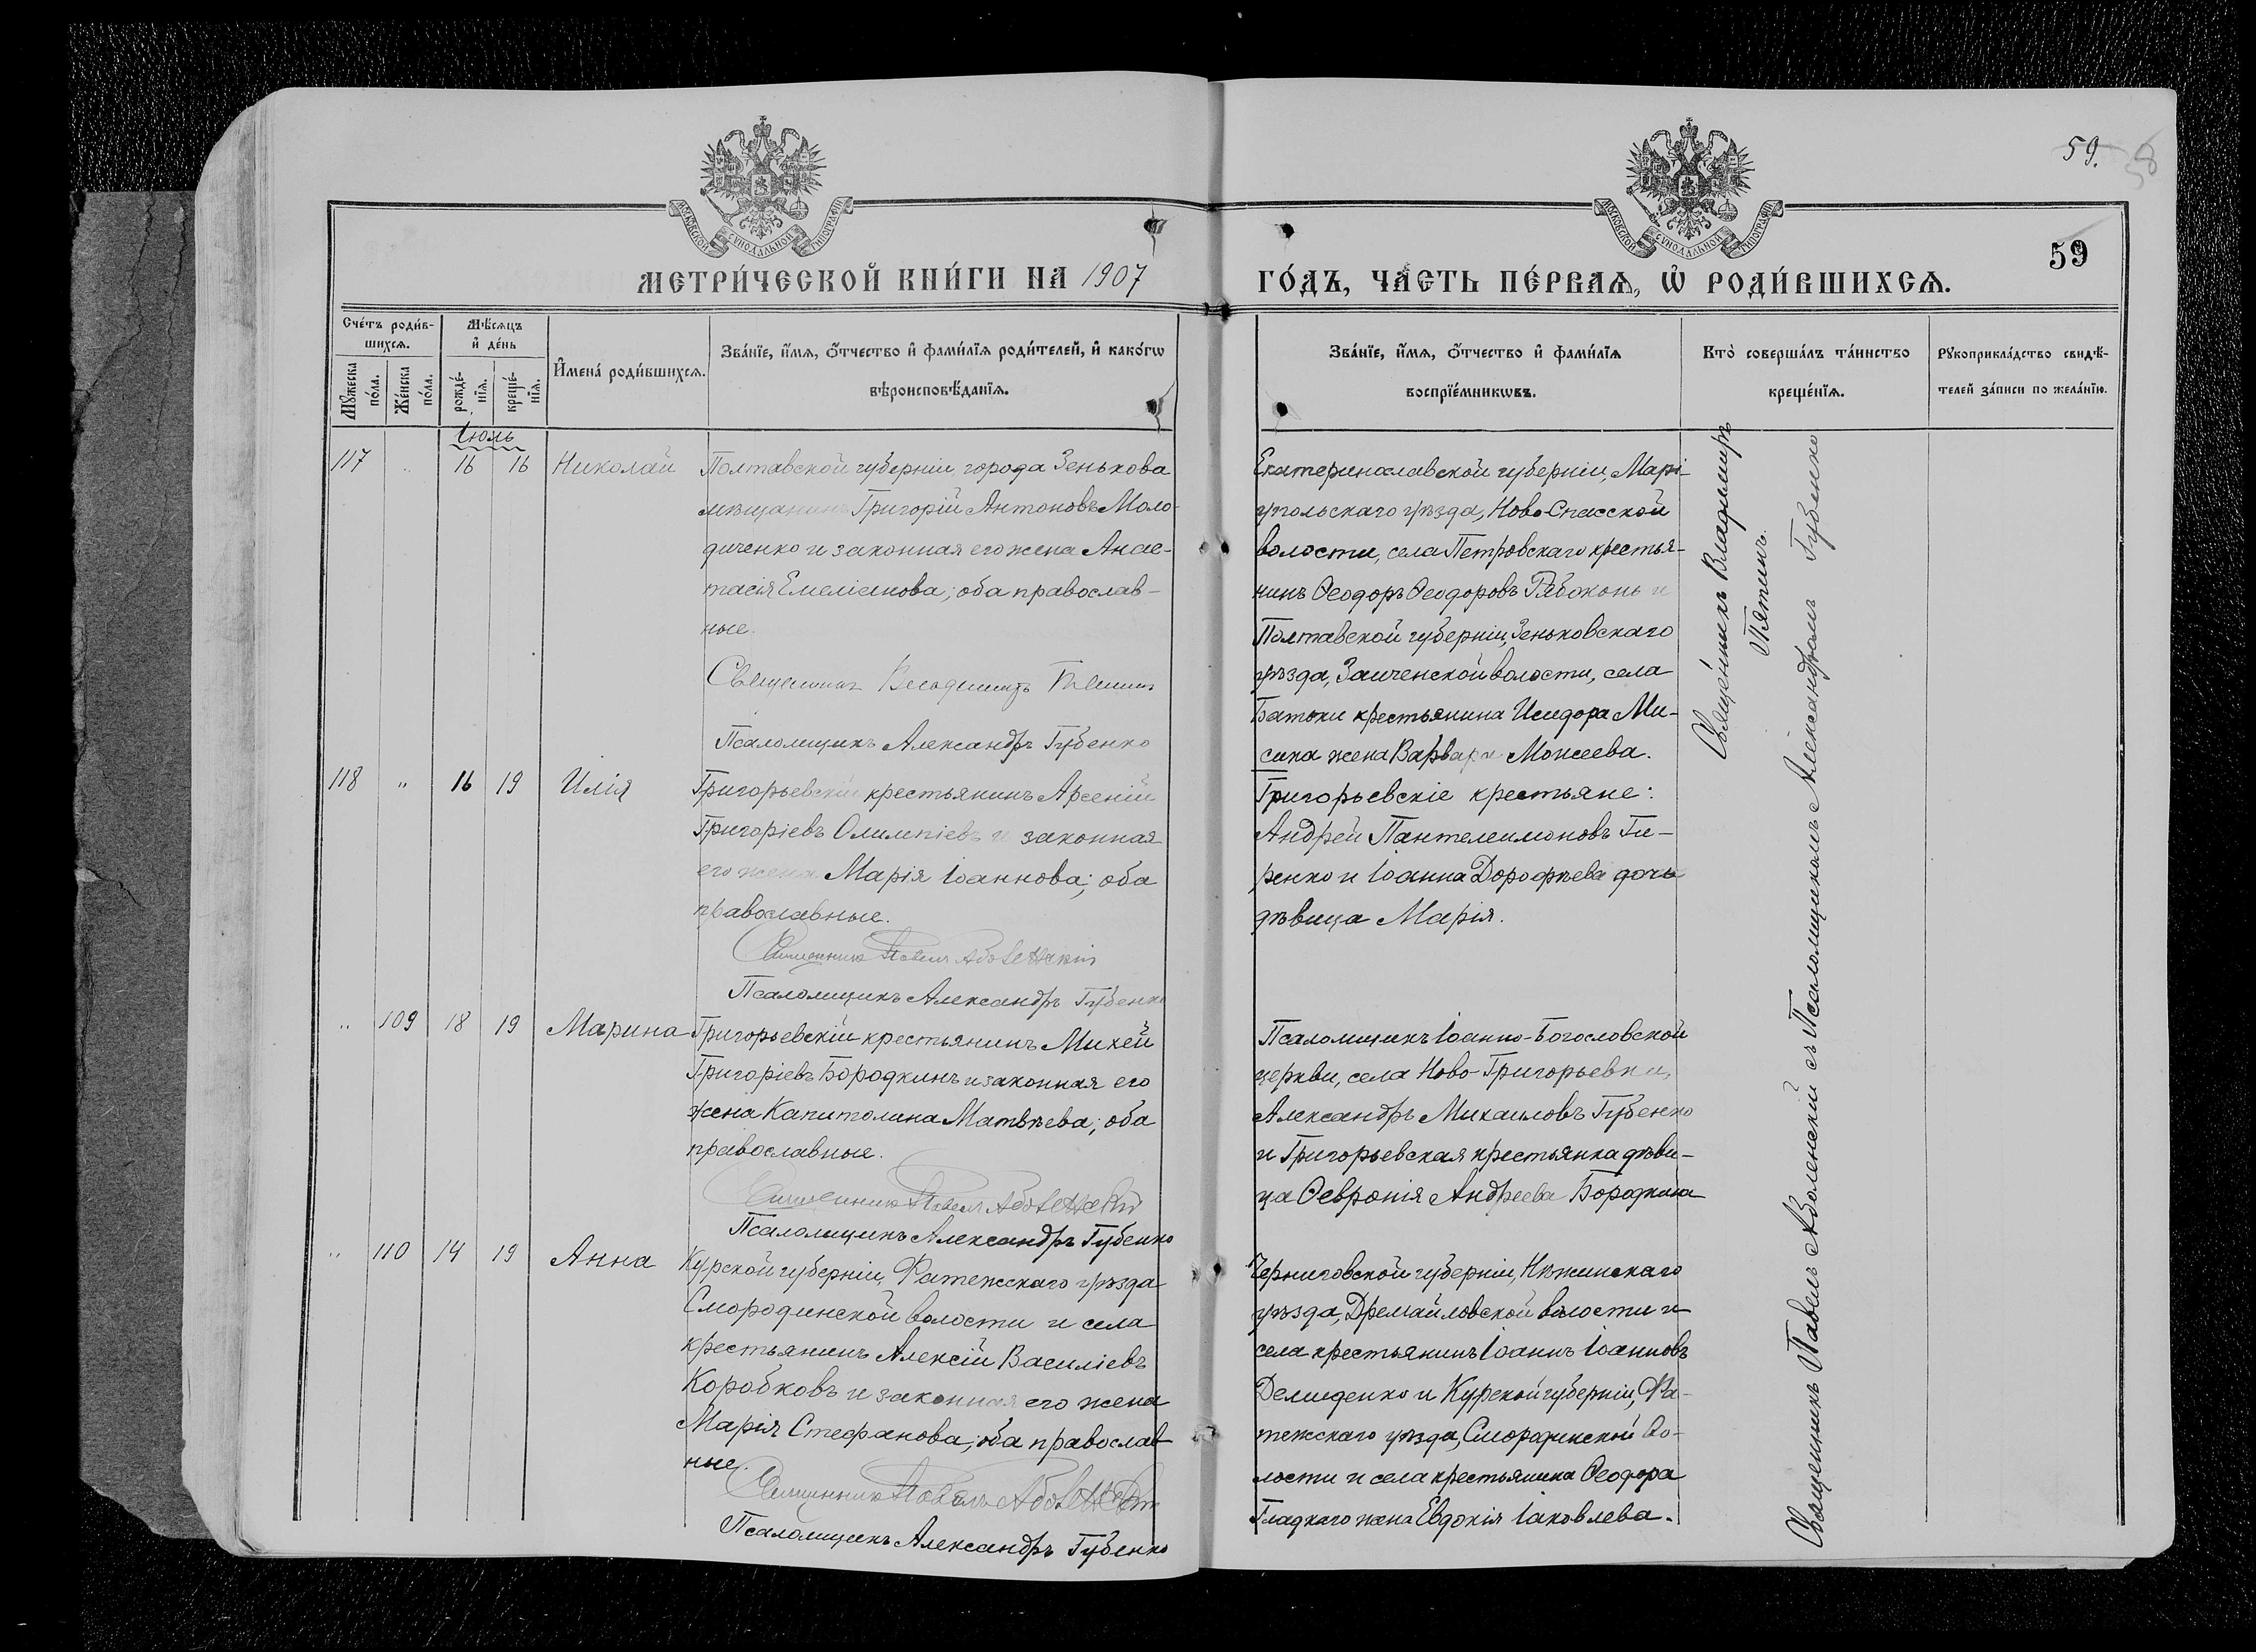 59. 58
МОСКОВСКОЙ СУНОДАЛЬНОЙ ТИПОГРАФІИ
МОСКОВСКОЙ СУНОДАЛЬНОЙ ТИПОГРАФІИ
59
МЕТРИ́ЧЕСКОЙ КНИ́ГИ НА 1907
ГО́ДЪ, ЧА́СТЬ ПЕ́РВАѦ, Ѡ҆ РОДИ́ВШИХСѦ.
Сче́тъ роди́в-
шихсѧ.
Мꙋ́жеска по́ла.
Же́нска по́ла.
Мѣ́сѧцъ
и҆ де́нь
рожде́-
нїѧ.
креще́-
нїѧ.
И҆мена̀ роди́вшихсѧ.
Зва́нїе, и҆́мѧ, ѻ҆́тчество и҆ фами́лїѧ роди́телей, и҆ како́гѡ
вѣроисповѣ́данїѧ.
Зва́нїе, и҆́мѧ, ѻ҆́тчество и҆ фами́лїѧ
воспрїе́мникѡвъ.
Кто̀ соверша́лъ та́инство
креще́нїѧ.
Рꙋкоприкла́дство свидѣ́-
телей за́писи по жела́нїю.
Іюль
117 „ 16 16 Николай
Полтавской губерніи, города Зенькова
мѣщанинъ Григорій Антоновъ Моло-
диченко и законная его жена Анас-
тасія Емеліанова; оба православ-
ные.
Священникъ Владимиръ Пятинъ
Псаломщикъ Александръ Губенко
Екатеринославской губерніи, Марі-
упольскаго уѣзда, Ново-Спасской
волости, села Петровскаго крестья-
нинъ Ѳеодоръ Ѳеодоровъ Рябоконь и
Полтавской губерніи, Зеньковскаго
уѣзда, Заиченской волости, села
Батьки крестьянина Исидора Ми-
сика жена Варвара Моисеева.
Священникъ Владимиръ
Пятинъ.
118 „ 16 19 Илія
Григорьевскій крестьянинъ Арсеній
Григоріевъ Олимпіевъ и законная
его жена Марія Іоаннова; оба
православные.
Священникъ Павелъ Аболенскій
Псаломщикъ Александръ Губенко
Григорьевскіе крестьяне:
Андрей Пантелеимоновъ Ги-
ренко и Іоанна Дорофѣева дочь
дѣвица Марія.
Священникъ Павелъ Аболенскій съ Псаломщикомъ Александромъ Губенко
„ 109 18 19 Марина
Григорьевскій крестьянинъ Михей
Григоріевъ Бородкинъ и законная его
жена Капитолина Матвѣева; оба
православные.
Священникъ Павелъ Аболенскій
Псаломщикъ Александръ Губенко
Псаломщикъ Іоанно-Богословской
церкви, села Ново-Григорьевки,
Александръ Михаиловъ Губенко
и Григорьевская крестьянка дѣви-
ца Ѳевронія Андреева Бородкина
„ 110 14 19 Анна
Курской губерніи, Фатежскаго уѣзда
Смородинской волости и села
крестьянинъ Алексій Василіевъ
Коробковъ и законная его жена
Марія Стефанова; оба православ-
ные.
Священникъ Павелъ Аболенскій
Псаломщикъ Александръ Губенко
Черниговской губерніи, Нѣжинскаго
уѣзда, Дремайловской волости и
села крестьянинъ Іоаннъ Іоанновъ
Демиденко и Курской губерніи, Фа-
тежскаго уѣзда, Смородинской во-
лости и села крестьянина Ѳеодора
Гладкаго жена Евдокія Іаковлева.